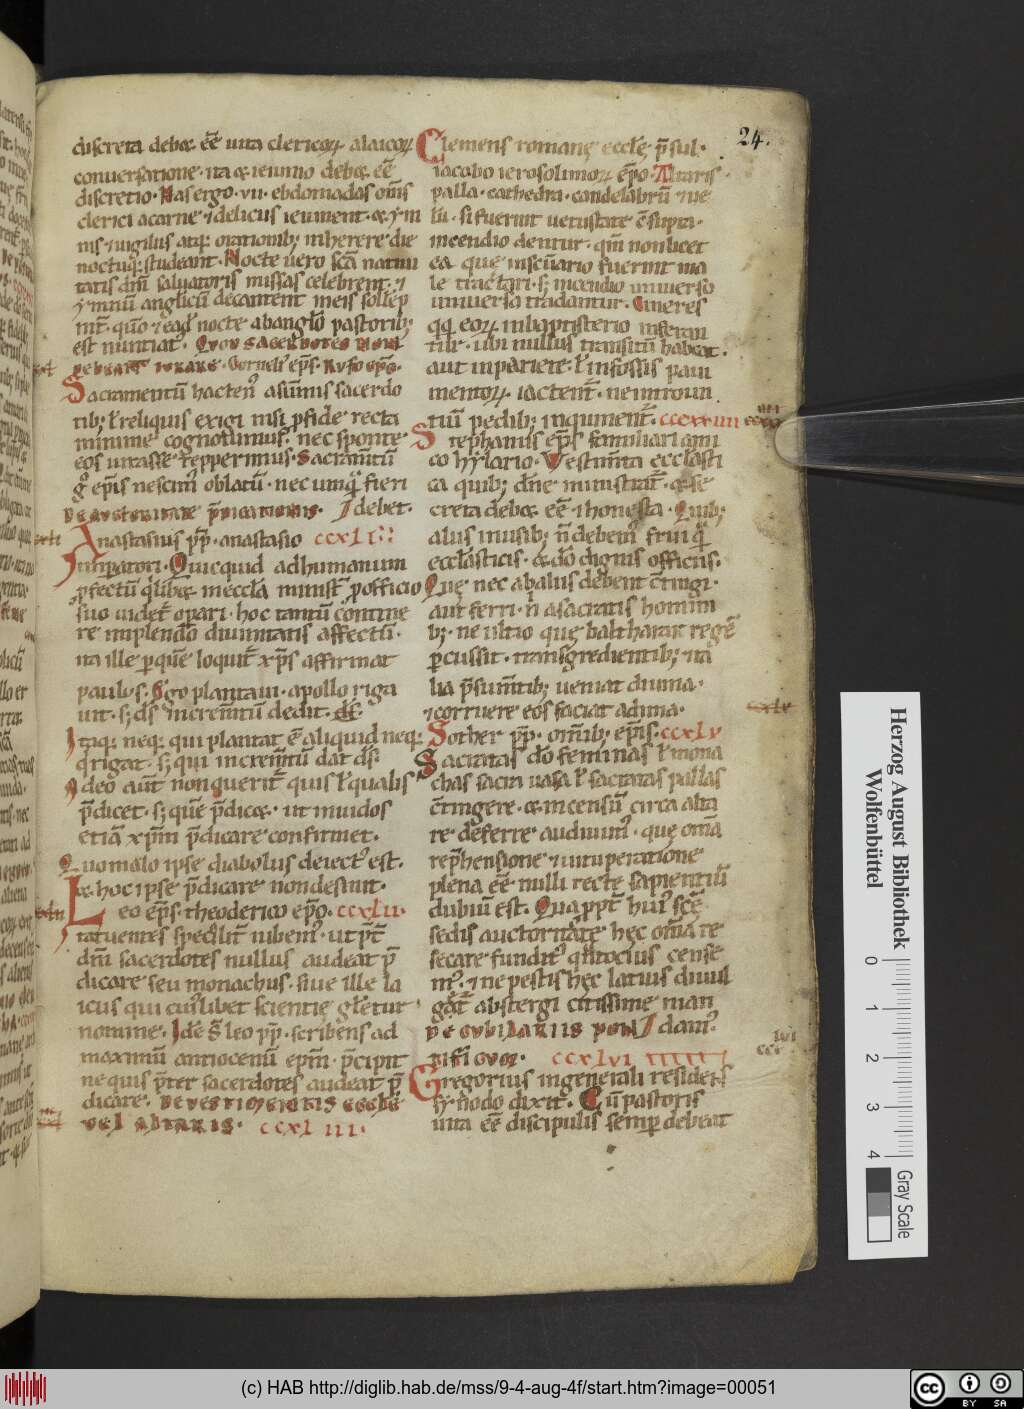 24.
discreta debet eē uita clericoꝝ. a laicoꝝ
conuersatione. ita et ieiunio debet eē
discretio. Has ergo. vii. ebdomadas om̄s
clerici a carne et delicijs ieiunent. et ymnis
et uigiliis atq; orationib; inherere die
noctuq; studeant. Nocte uero scā natiui
tatis dn̄i saluatoris missas celebrent. et
ymnū anglicū decantent in eis sollēp
nit̄. qm̄ et eadē nocte ab anglo pastorib;
est nuntiat̄. Quod sacerdotes non
debeant iurare. Corneli' ep̄s. Rufo ep̄o.
Sacramentū hacten' a sūmis sacerdo
tib; ł reliquis exigi nisi p fide recta
minime cognouimus. nec sponte
eos iurasse repperimus. Sacram̄tū
g° ep̄is nescim' oblatū. nec umq̄ fieri
De austeritate p̄dicationis. debet.
Anastasius pp̄. anastasio ccxli
Inp̄atori. Quicquid ad humanum
pfectū q̄libet in eccl̄a ministr̄ p officio
suo uidet̄ opari. hoc tantū contine
re implendo diuinitatis affectū.
ita ille per quē loquit̄ xp̄s affirmat
paulus. Ego plantaui. apollo riga
uit. s; ds̄ increm̄tū dedit.
Itaq; neq; qui plantat ē aliquid neq;
q̄ rigat. s; qui increm̄tū dat ds̄.
Adeo aut̄ non querit̄ quis ł qualis
p̄dicet. s; quē p̄dicet. ut inuidos
etiā xp̄m p̄dicare confirmet.
Quo malo ipse diabolus deiect' est.
et hoc ipse p̄dicare non desinit.
Leo ep̄s. theoderico ep̄o. ccxlii.
Statuentes speciałr̄ iubem'. ut p̄t̄
dn̄i sacerdotes nullus audeat p̄
dicare seu monachus. siue ille la
icus qui cui'libet scientie gl̄etur
nomine. Idē s̄ leo pp̄. scribens ad
maximū antiocenū ep̄m. p̄cipit
ne quis p̄ter sacerdotes audeat p̄
dicare. De uestimentis eccl̄e
uel altaris. ccxl iii.
Clemens romanę eccłe p̄sul.
iacobo ierosolimoꝝ ep̄o. Altaris
palla. cathedra. candelabrū et ue
lū. si fuerint uetustate csūpta.
incendio dentur. qm̄ non licet
ea que in sc̄uario fuerint ma
le tractari. s; incendio uniuerso
uniuersa tradantur. Cineres
q̄q; eoꝝ. in baptisterio inferan
tur. ubi nullus transitū habeat.
aut in pariete. ł in fossis paui
mentoꝝ. iactent̄. ne introun
tiū pedib; inquinent̄. ccxliiii
Stephanus ep̄s familiari ami
co hylario. Vestim̄ta eccl̄asti
ca quib; dn̄e ministrat̄. et sa
creta debet eē et honesta. Quib;
alus in usib; n̄ debem' frui q̄
eccl̄asticis. et do dignis officiis.
Que nec ab aliis debent ctingi.
aut ferri. n̄ a sacratis homini
b;. ne ultio que balthasar regē
pcussit. transgredientib; et ta
lia p̄sum̄tib; ueniat diuina.
et corruere eos faciat ad ima.
Sother pp̄. om̄ib; ep̄is. ccxlv
Sacratas do feminas ł mona
chas sacra uasa ł sacratas pallas
ctingere. et incensū circa alta
re deferre audiuim'. que om̄a
rep̄hensione et uituperatione
plena eē nulli recte sapientiū
dubiū est. Quappt̄ hui' sc̄e
sedis auctoritate hęc om̄a re
secare fundit' q̄ntocius cense
m'. et ne pestis hęc latius diuul
gēt̄ abstergi citissime man
De cubilariis pon dam'.
tificum. ccxlvi
Gregorius in generali residens
synodo dixit. Cū pastoris
uita eē discipulis semp debeat
Herzog August Bibliothek
Wolfenbüttel
0 1 2 3 4
Gray Scale
(c) HAB http://diglib.hab.de/mss/9-4-aug-4f/start.htm?image=00051
cc BY SA